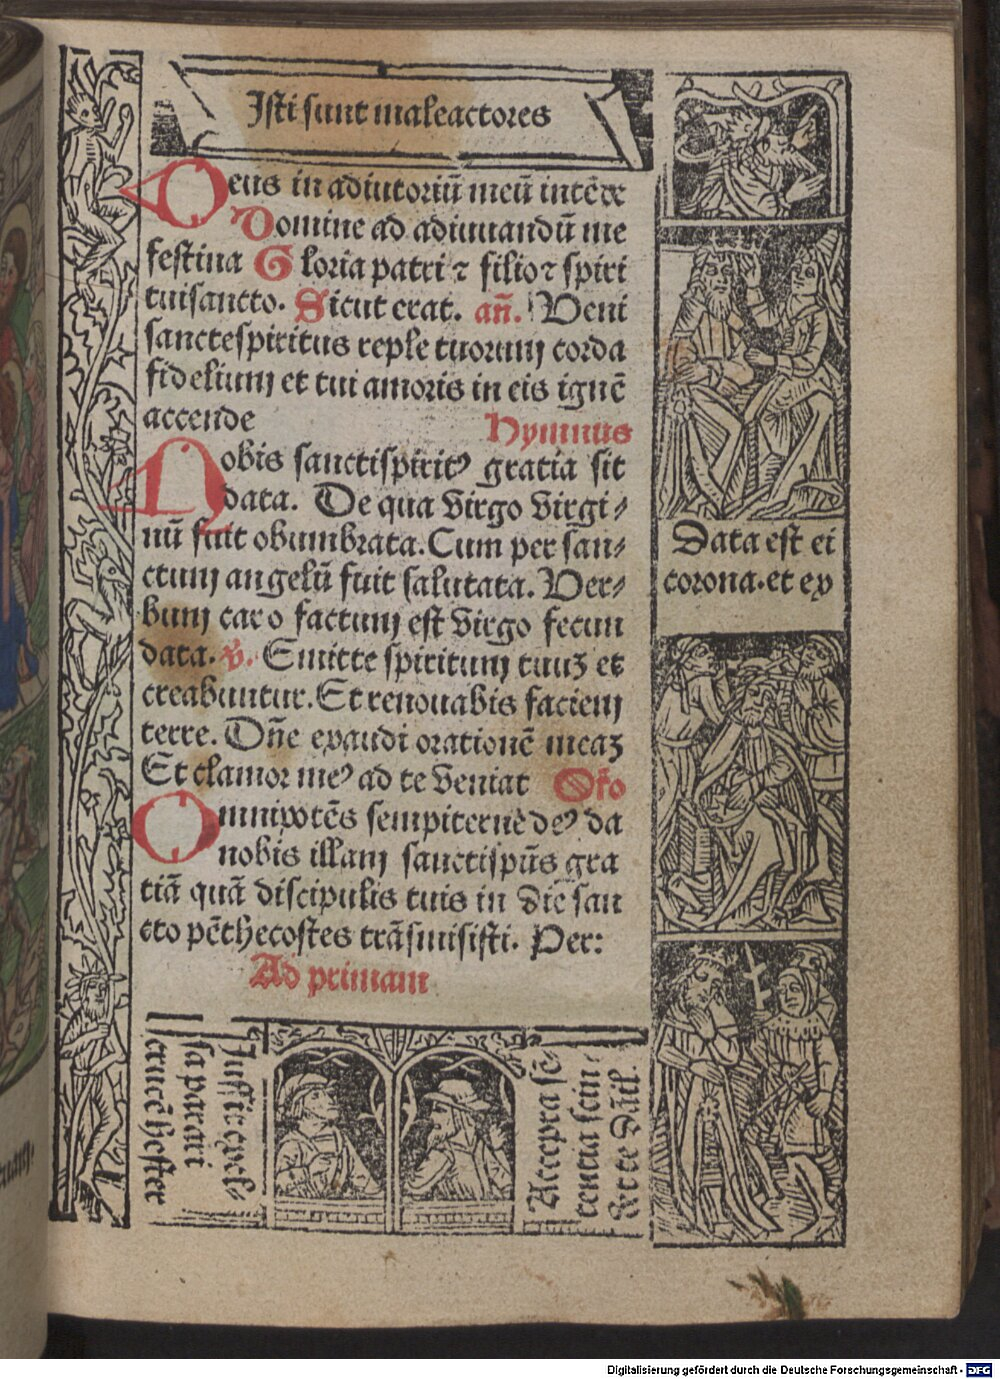 Isti sunt maleactores
Deus in adiutoriū meū intēde
Domine ad adiuuandū me
festina Gloria patri ⁊ filio ⁊ spiri
tuisancto. Sicut erat. añ. Veni
sanctespiritus reple tuorum corda
fidelium et tui amoris in eis ignē
accende Hymnus
Nobis sanctispiritꝰ gratia sit
data. De qua virgo virgi-
nū fuit obumbrata. Cum per san-
ctum angelū fuit salutata. Ver-
bum caro factum est virgo fecun
data. v̄. Emitte spiritum tuuʒ et
creabuntur. Et renouabis faciem
terre. Dñe exaudi orationē meaʒ
Et clamor meꝰ ad te veniat Oŕo
Omnipotēs sempiterne deꝰ da
nobis illam sanctispūs gra
tiā quā discipulis tuis in die san
cto pēthecostes trāsmisisti. Per:
Ad primam
Data est ei
corona. et ex
Iussit excel-
sa parari
crucē hester
Accepta sē-
tentia sein-
Et te Dāil.
Digitalisierung gefördert durch die Deutsche Forschungsgemeinschaft - DFG